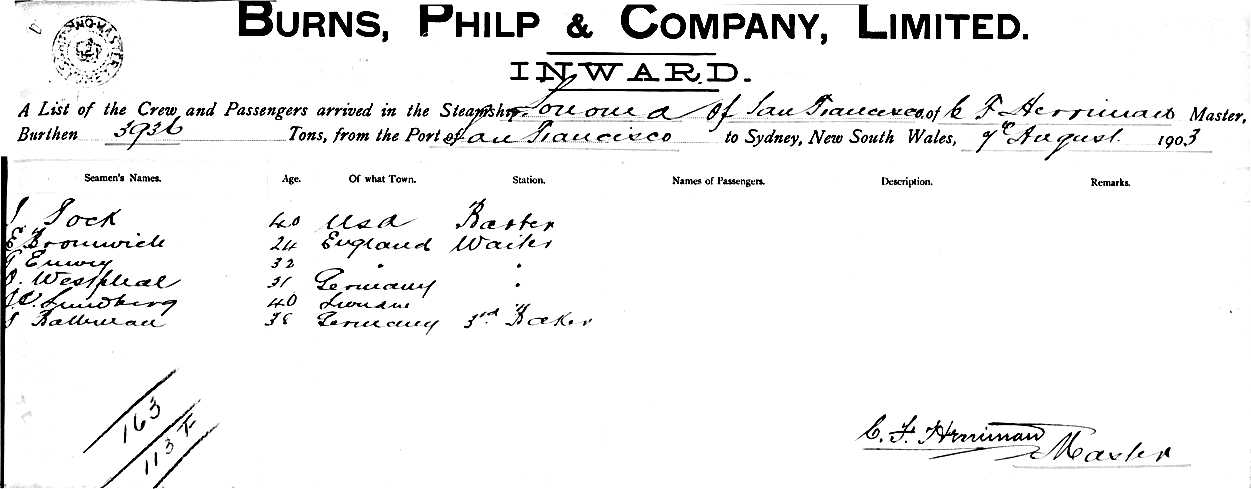 BURNS, PHILP & COMPANY, LIMITED.
INWARD.
A List of the Crew and Passengers arrived in the Steamship Sonoma of San Francisco of C F Herriman Master,
Burthen 3936 Tons, from the Port of San Francisco to Sydney, New South Wales, 7th August 1903
Seamen's Names. Age. Of what Town. Station. Names of Passengers. Description. Remarks.
40 USA
E Bromwich 24 England Waiter
32 "
O. Westphal 31 Germany "
Lundberg 40
38 Germany 3rd Baker
163
113 F
C. F. Herriman Master